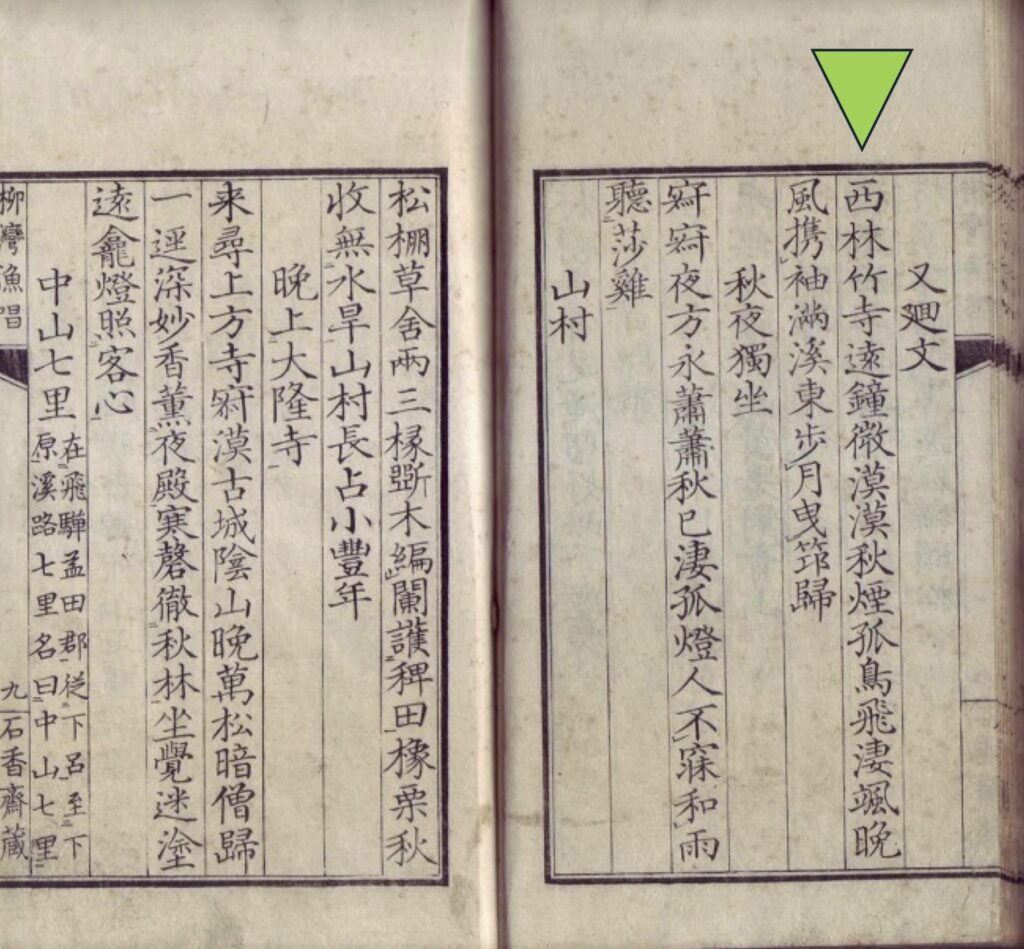 又廻文
西林竹寺遠鐘微漠漠秋煙孤鳥飛淒颯晩
風携袖滿溪東步月曳筇歸
秋夜獨坐
寂寂夜方永蕭蕭秋已淒孤燈人不寐和雨
聽莎雞
山村
松棚草舍兩三椽斲木編闌護稗田橡栗秋
收無水旱山村長占小豐年
晩上大隆寺
来尋上方寺寂漠古城陰山晩萬松暗僧歸
一逕深妙香薫夜殿寒磬徹秋林坐覺迷塗
遠龕燈照客心
中山七里
在飛驒孟田郡從下呂至下
原溪路七里名曰中山七里
柳灣漁唱
九
石香齋藏